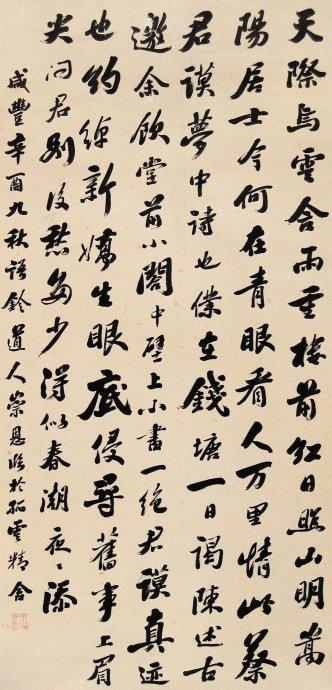 天際烏雲含雨重樓前紅日照山明嵩
陽居士今何在青眼看人万里情此蔡
君謨夢中詩也僕在錢塘一日謁陳述古
邀余飲堂前小閣中壁上小書一絕君謨真迹
也約綽新嬌生眼底侵尋舊事上眉
尖问君別後愁多少得似春潮夜〻添
咸豐辛酉九秋語鈴道人崇恩臨於雲精舍